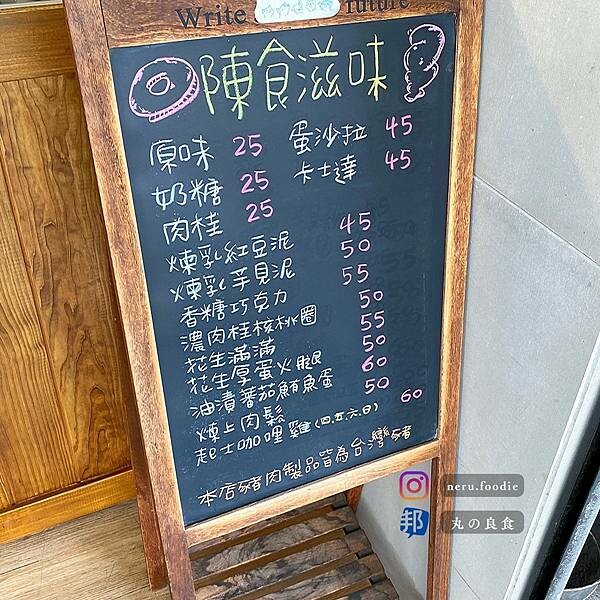 Write future
陳食滋味
原味 25 蛋沙拉 45
奶糖 25 卡士達 45
肉桂 25
煉乳紅豆泥 45
煉乳芋見泥 50
香糖巧克力 55
濃肉桂核桃圈 50
花生滿滿 55
花生厚蛋火腿 50
油漬蕃茄鮪魚蛋 60
煉上肉鬆 50
起士咖哩雞(四.五.六.日) 60
本店豬肉製品皆為台灣豬
neru.foodie
邦 丸の良食